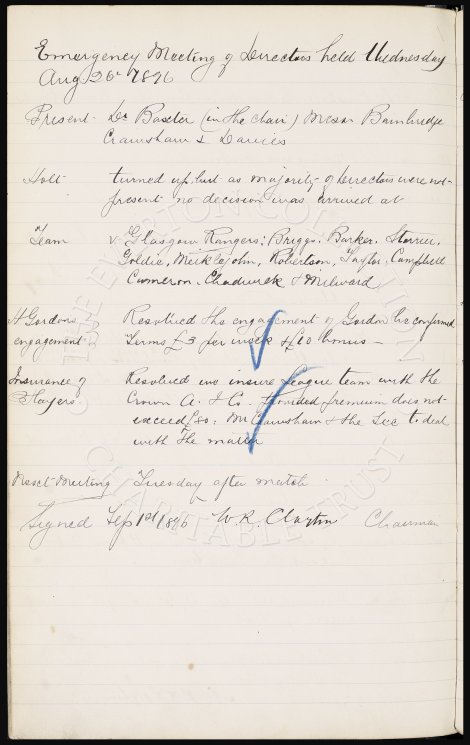 Emergency Meeting of Directors held Wednesday
Aug 26th 1896
Present. Dr Baxter (in the chair) Messrs Bainbridge
Crawshaw & Davies
Holt turned up, but as majority of Directors were not
present no decision was arrived at
Team v Glasgow Rangers: Briggs. Barker. Storrier.
Goldie. Meiklejohn. Robertson. Taylor. Campbell
Cameron. Chadwick & Milward
Gordons Resolved the engagement of Gordon be confirmed
engagement. Terms £3 per week & £10 bonus —
Insurance of Resolved we insure League team with the
Players. Crown A. I Co. provided premium does not
exceed £80: Mr Crawshaw & the Sec to deal
with the matter
Next Meeting Tuesday after match.
Signed Sep 1st 1896 W. R. Clayton Chairman
THE EVERTON COLLECTION
CHARITABLE TRUST